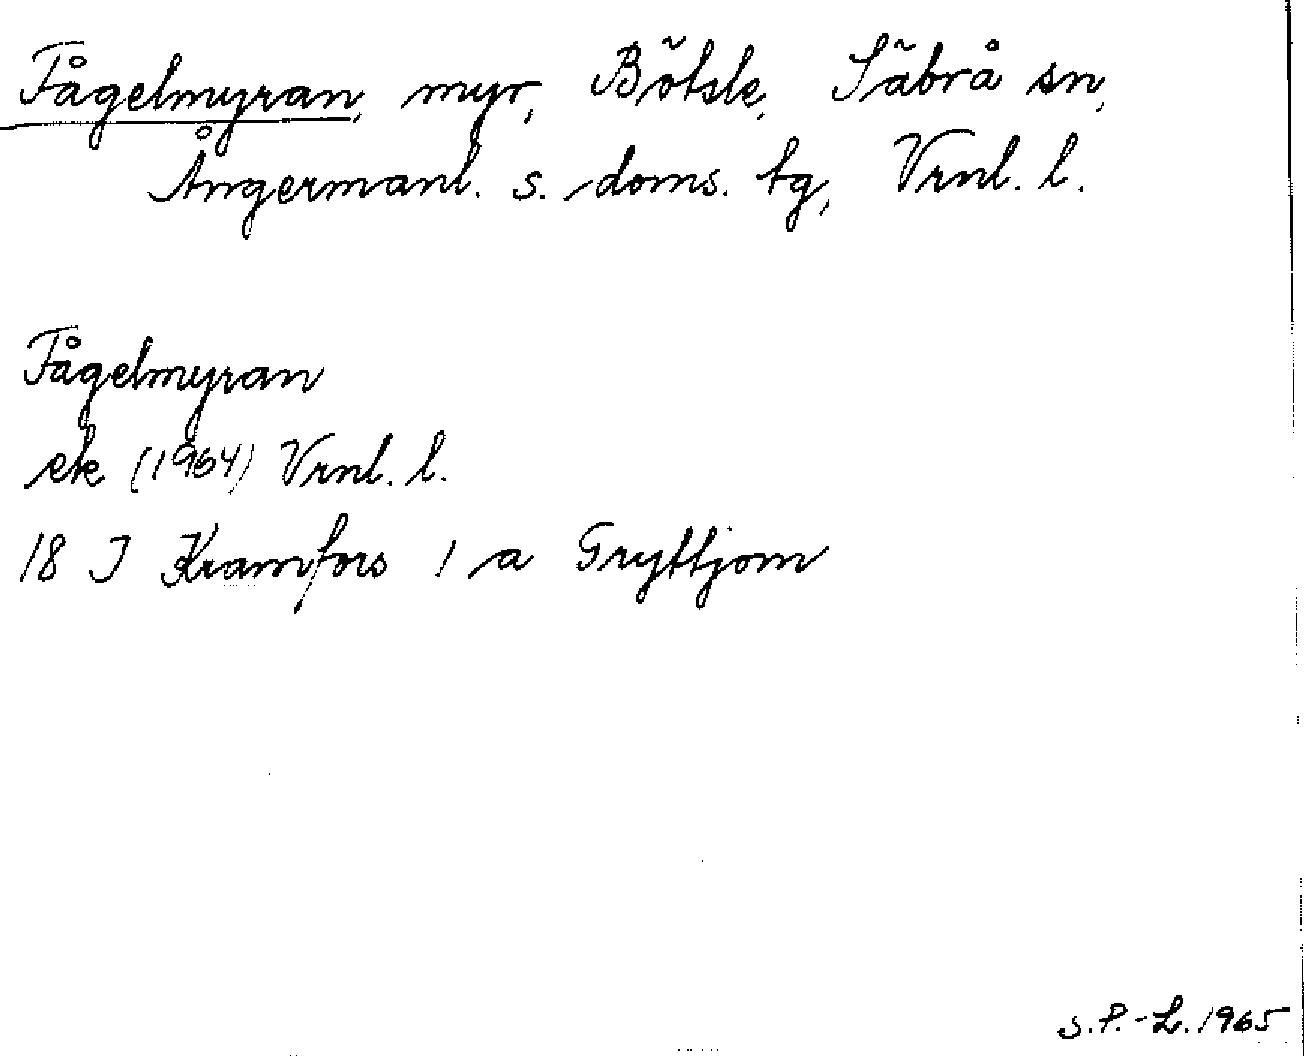 Fågelmyran, myr, Bötsle, Säbrå sn,
Ångermanl. s. doms. tg, Vrnl. l.
Fågelmyran
ek (1964) Vrnl. l.
18 I Kramfors 1 a Gryttjom
S.P.-L. 1965